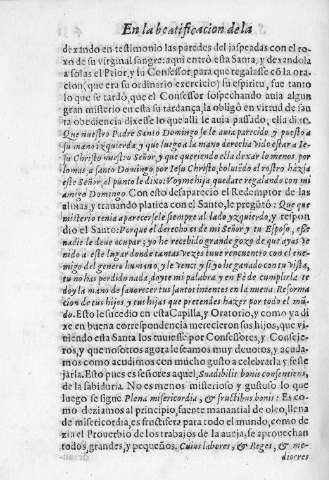 En la beatificacion de la
dexando en testimonio las paredes del jaspeadas con el ro-
xo de su virginal sangre: aqui entrò esta Santa, y dexandola
a solas el Prior, y su Confessor para que regalasse cō la ora-
cion (que era su ordinario exercicio) su espiritu, fue tanto
lo que se tardò, que el Confessor sospechando auia algun
gran misterio en esta su tardança, la obligò en virtud de san
ta obediencia dixesse lo que alli le auia passado, ella dixo:
Que nuestro Padre Santo Domingo se le auia parecido y puesto a
su mano izquierda y que luego a la mano derecha vido estar a Ie-
su Christo nuestro Señor y que queriendo ella dexar lo menos por
lo mas, a santo Domingo por Iesu Christo, boluiēdo el rostro hàzia
este Señor, al punto le dixo: Yo me huija quedate regalando con mi
amigo Domingo Con esto desaparecio el Redemptor de las
almas, y trauando platica con el Santo, le pregūtò: Que que
misterio tenia aparecersele siempre al lado yzquierdo, y respon
dio el Santo: Porque el derecho es de mi Señor y tu Esposo, esse
nadie le deue ocupar; yo he recibido grande gozo de que ayas ve
nido a este lugar donde tantas vezes tuue rencuentro con el ene-
migo del genero humano, y le vency si yo he ganado con tu vista,
tu no has perdido nada, doyte mi palabra y en Fè de cumplirla te
doy la mano de fauorecer tus santos intentos en la nueua Reforma
cion de tus hijos y tus hijas que pretendes hazer por todo el mū-
do. Esto le sucedio en esta Capilla, y Oratorio, y como ya di
xe en buena correspondencia merecieron sus hijos, que vi-
niendo esta Santa los tuuiesse por Confessores, y Conseje-
ros, y que nosotros agora le seamos muy deuotos, y acuda-
mos como acudimos con mucho gusto a celebrarla y feste
jarla. Esto pues es señores aquel, Suadibilis bonis consentiens,
de la sabiduria. No es menos misterioso y gustoso lo que
luego se sigue Plena misericordia, & fructibus bonis: Es co-
mo deziamos al principio, fuente manantial de oleo, llena
de misericordia, es fructifera para todo el mundo, como de
zia el Prouerbio de los trabajos de la aueja, se aprouechan
todos, grandes, y pequeños. Cuius labores, & Reges, & me-
diocres